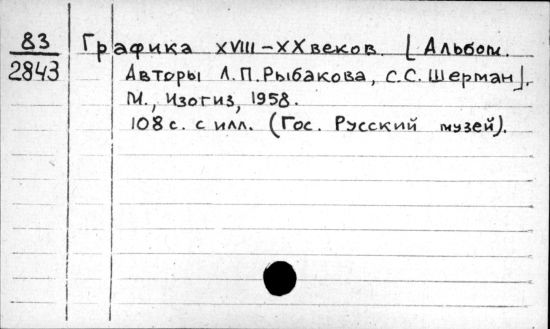 83 Графика XVIII-XX веков. [Альбом.
2843 Авторы Л.П. Рыбакова, С.С. Шерман].
М., Изогиз, 1958.
108 с. с илл. (Гос. Русский музей).